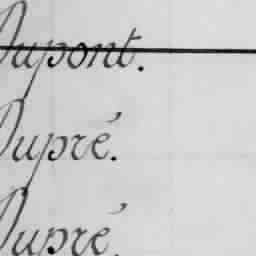 Dupont.
Dupré.
Dupré.